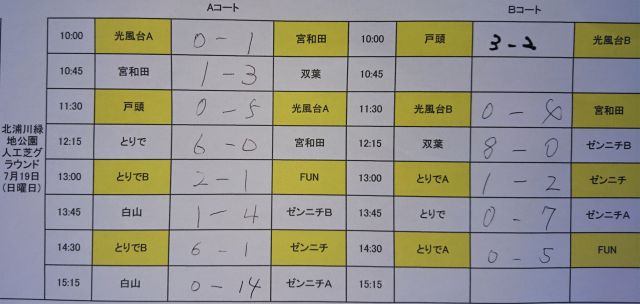 Aコート Bコート
北浦川緑地公園人工芝グラウンド7月19日(日曜日)
10:00 光風台A 0-1 宮和田 10:00 戸頭 3-2 光風台B
10:45 宮和田 1-3 双葉 10:45
11:30 戸頭 0-5 光風台A 11:30 光風台B 0- 宮和田
12:15 とりで 6-0 宮和田 12:15 双葉 8-0 ゼンニチB
13:00 とりでB 2-1 FUN 13:00 とりでA 1-2 ゼンニチ
13:45 白山 1-4 ゼンニチB 13:45 とりで 0-7 ゼンニチA
14:30 とりでB 6-1 ゼンニチ 14:30 とりでA 0-5 FUN
15:15 白山 0-14 ゼンニチA 15:15